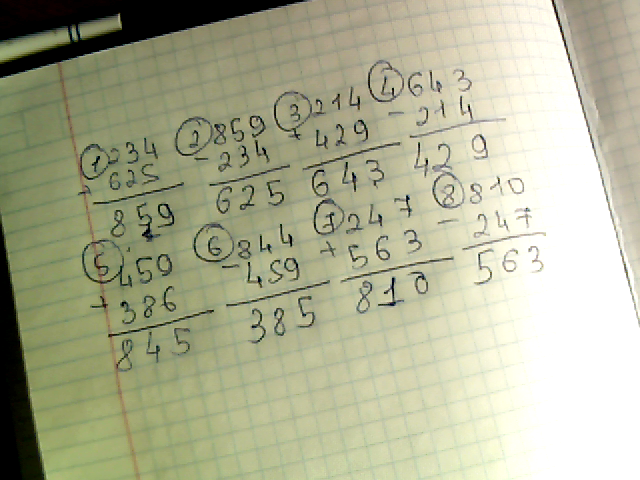 ① 234 ② 859 ③ 214 ④ 643
+ 625 - 234 + 429 - 214
859 625 643 429
⑤ 459 ⑥ 844 ⑦ 247 ⑧ 810
+ 386 - 459 + 563 - 247
845 385 810 563